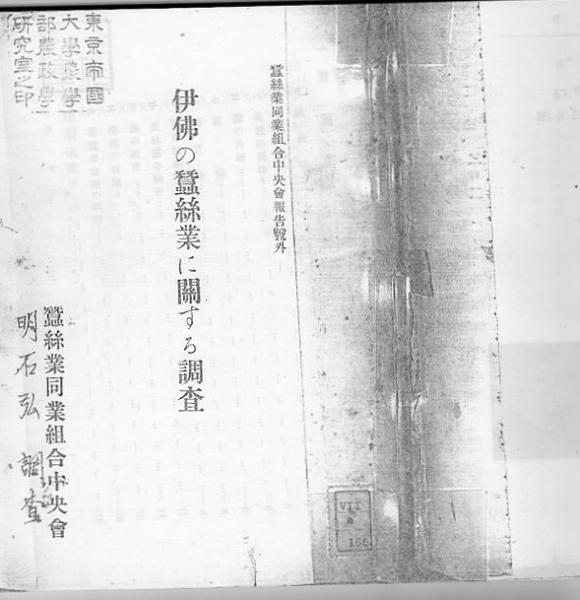 蠶絲業同業組合中央會報告號外
伊佛の蠶絲業に關する調査
蠶絲業同業組合中央會
明石弘 調査
東京帝國
大學農學
部農政學
研究室之印
VII
a
168